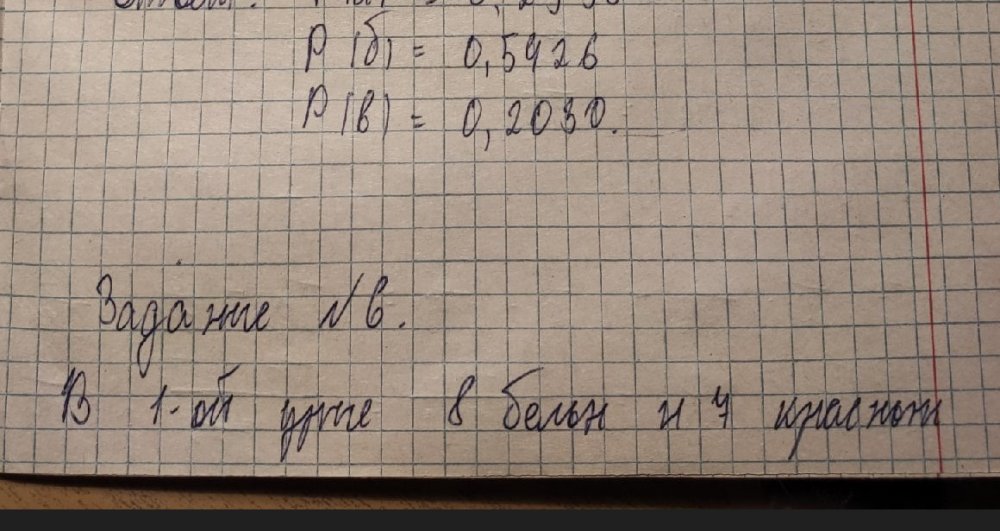 P(б) = 0,5926
P(в) = 0,2030.
Задание №6.
В 1-ой урне 8 белых и 4 красных